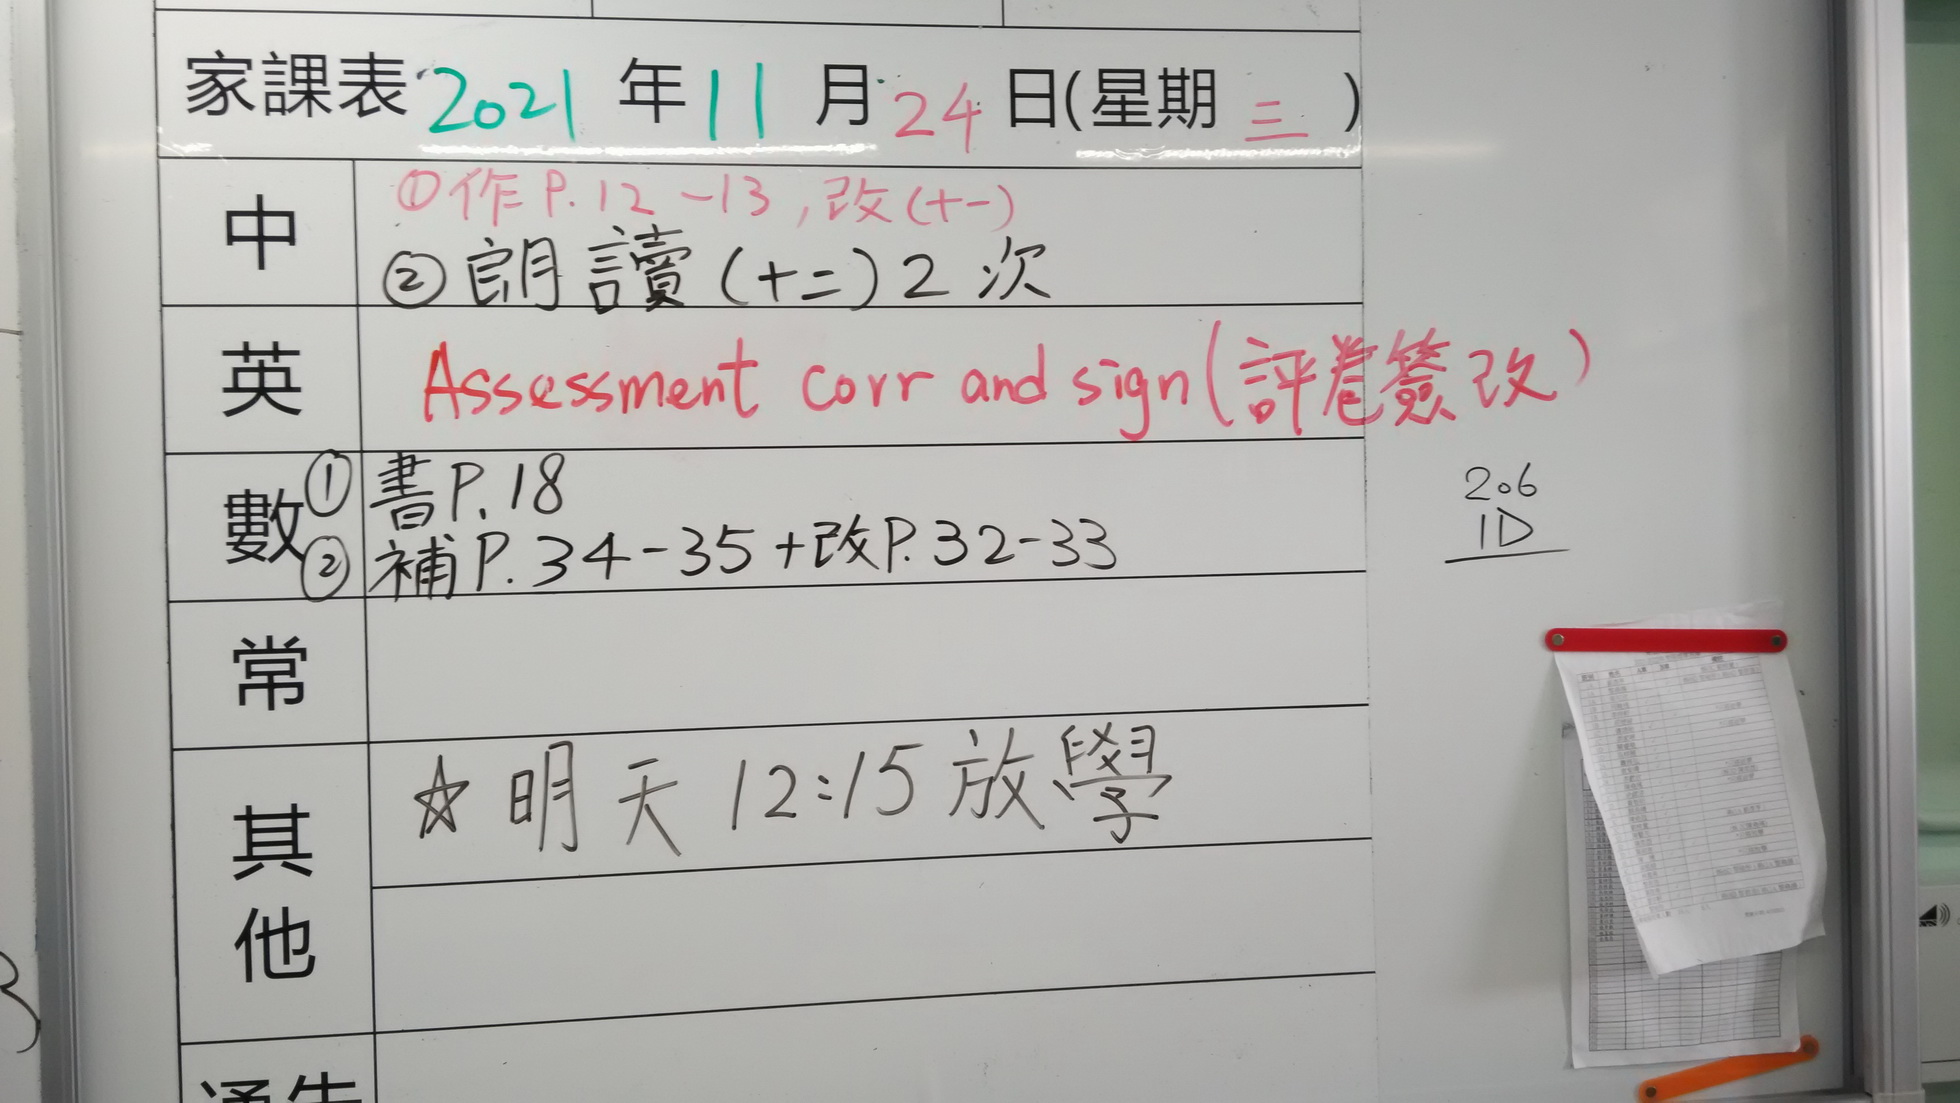 家課表 2021 年 11 月 24 日(星期 三 )
中
①作P.12-13,改(十一)
②朗讀(十二)2次
英
Assessment corr and sign(評卷簽改)
數
①書P.18
②補P.34-35+改P.32-33
206
1D
常
其他
☆明天12:15放學
通告